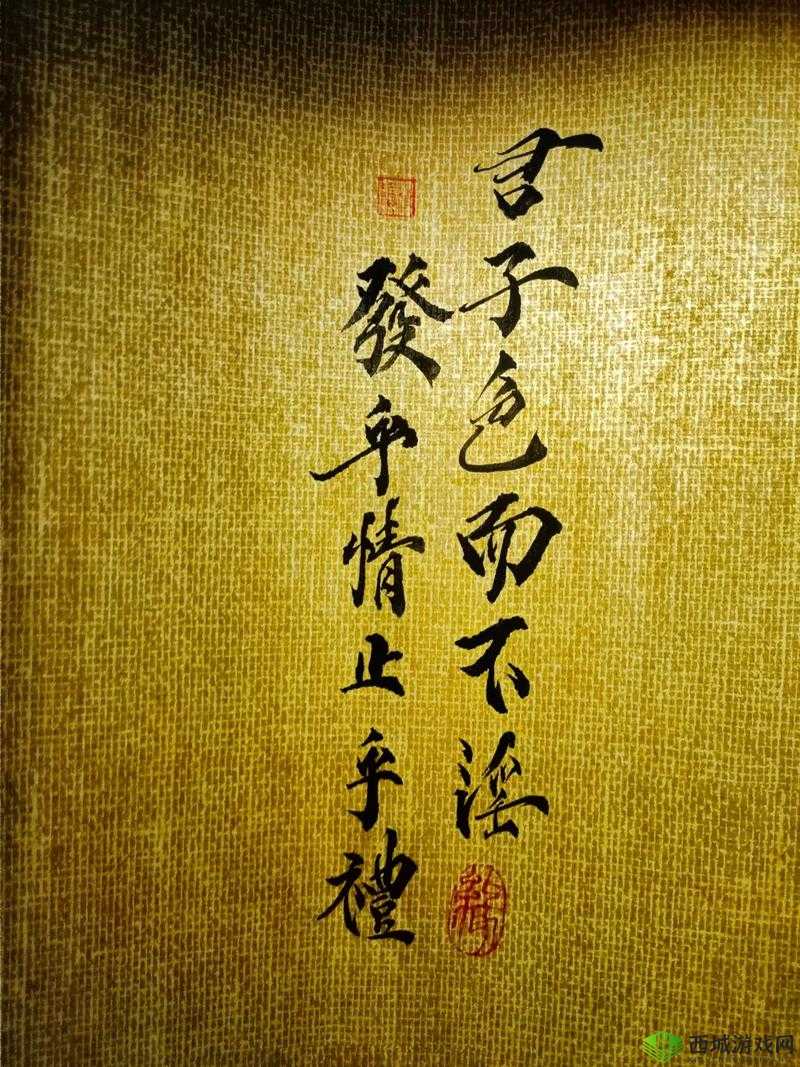 君子色而不淫
發乎情止乎禮
西城游戏网